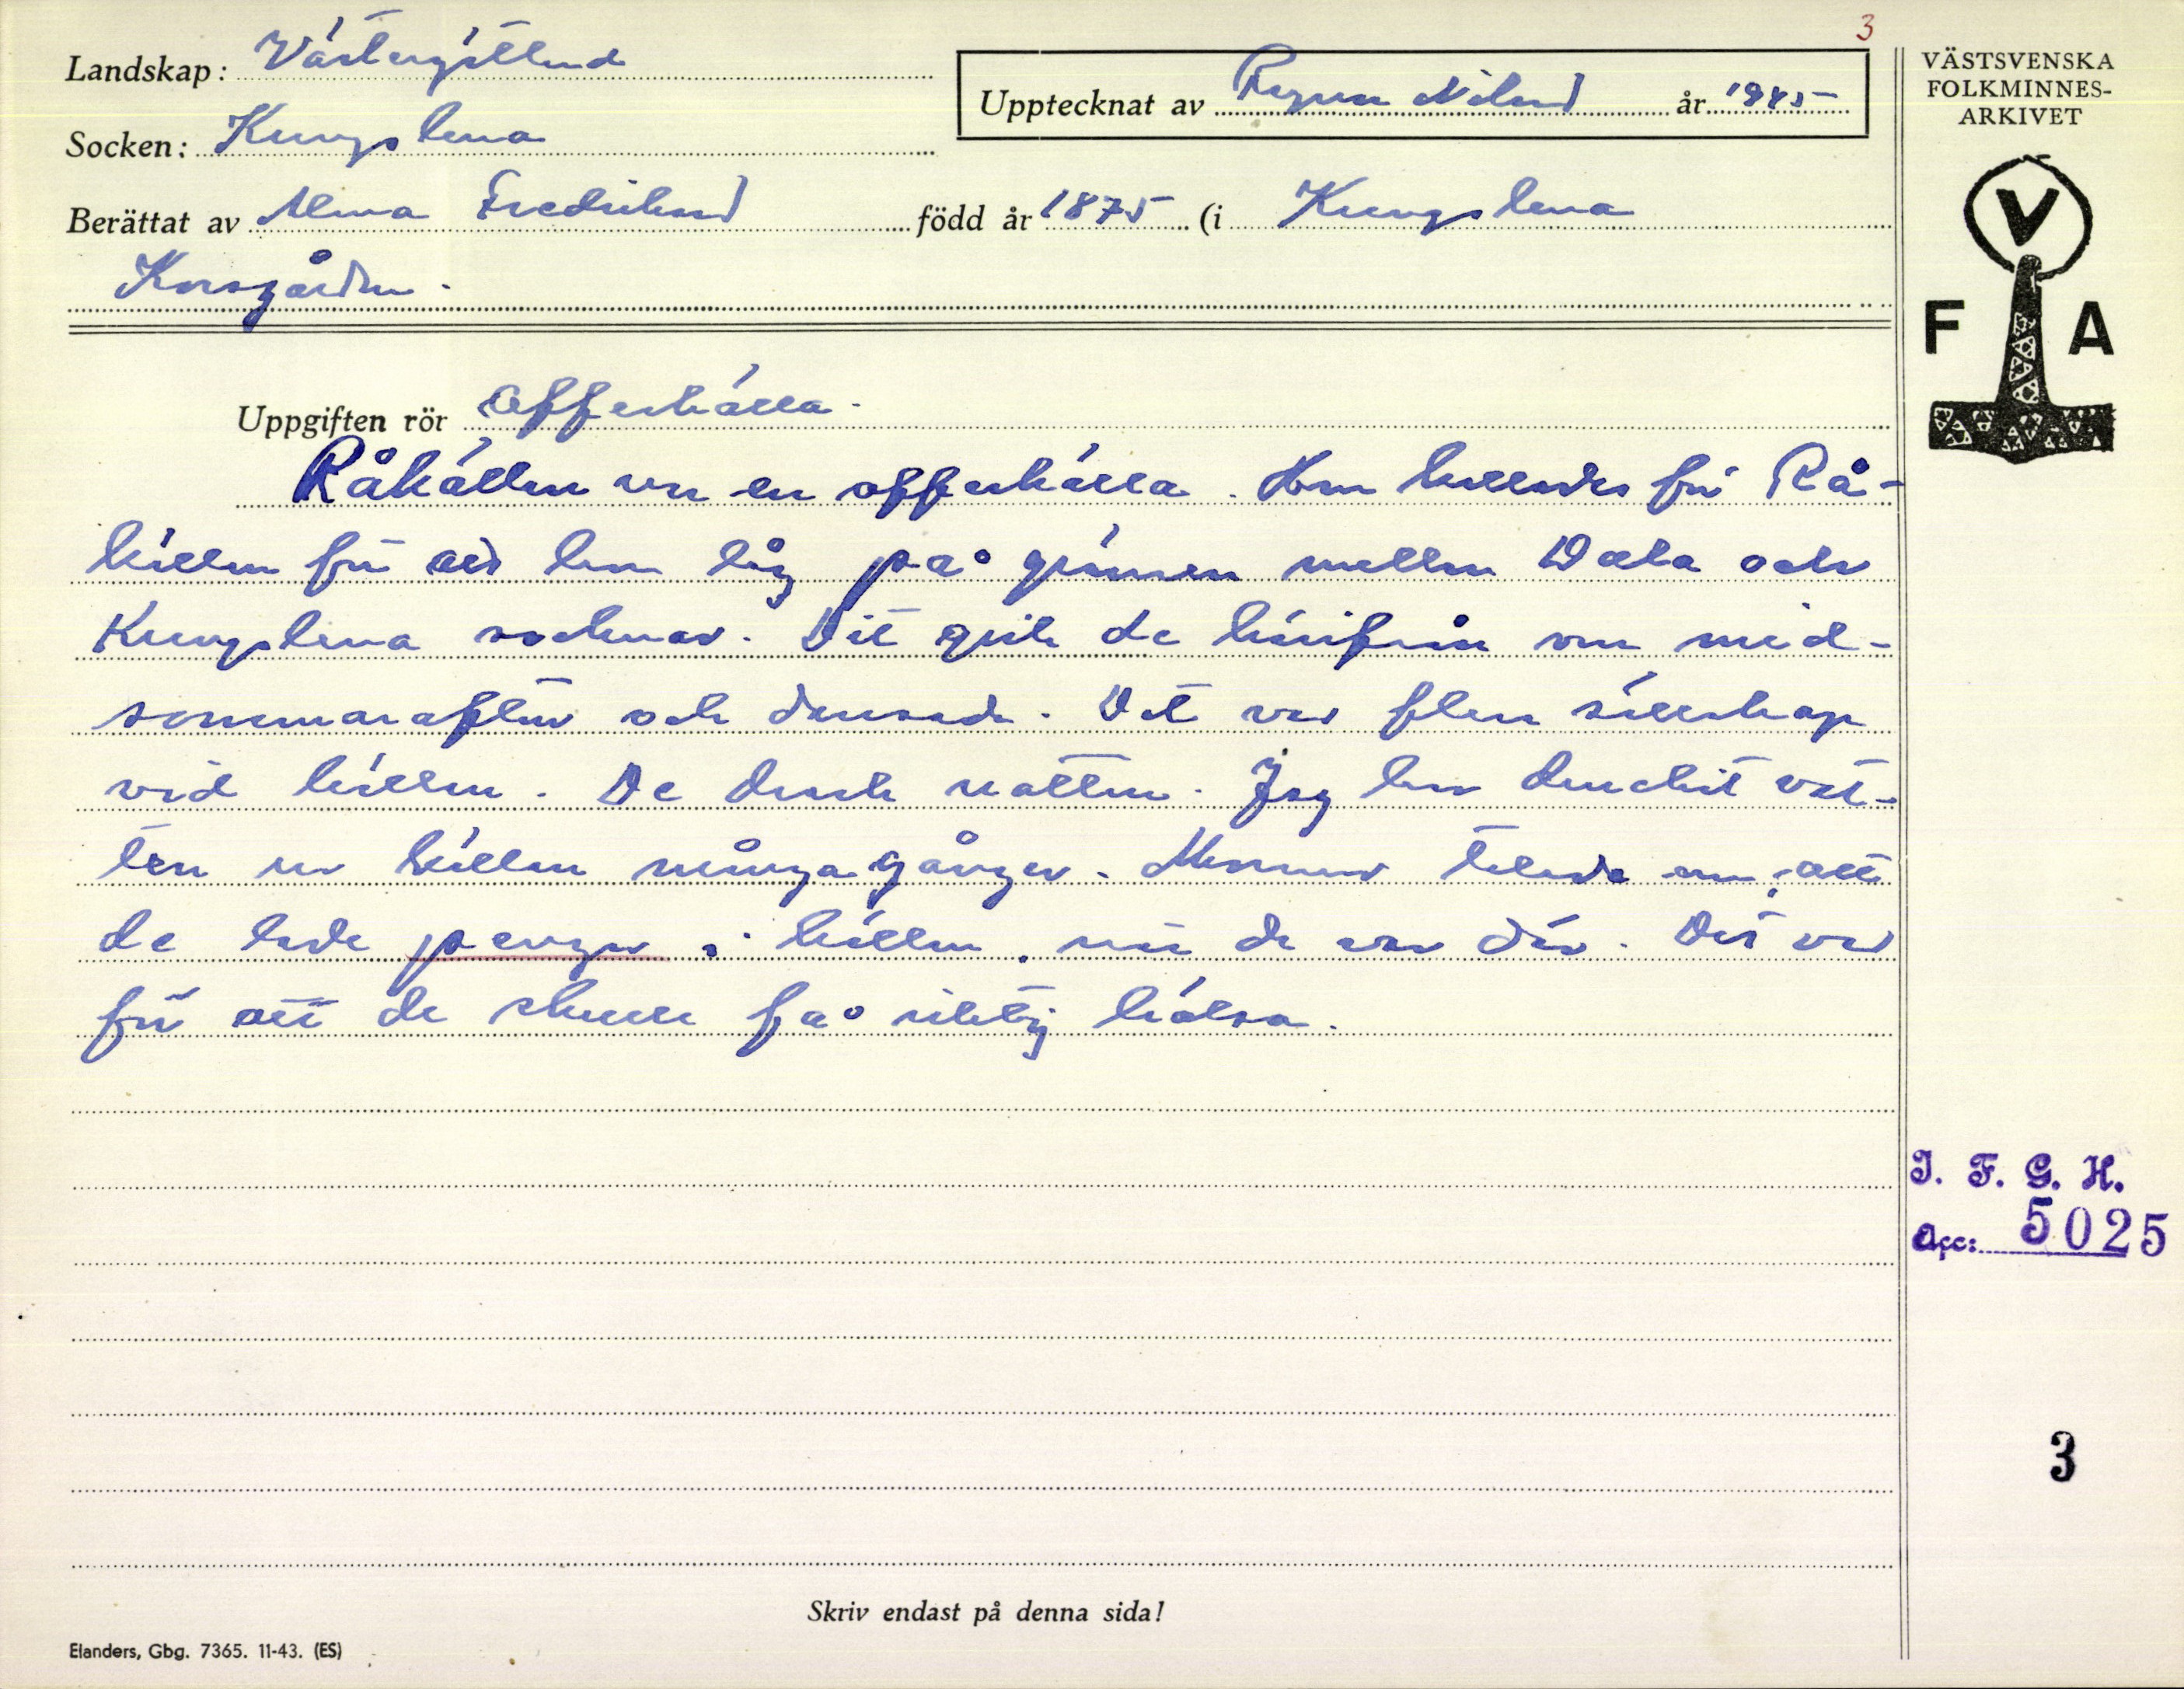 3
Landskap: Västergötland
Upptecknat av Ragnar Nilsson år 1945
Socken: Kungslena
Berättat av Alma Fredriksson född år 1875 (i Kungslena
Korsgården.
VÄSTSVENSKA
FOLKMINNES-
ARKIVET
V
F A
Uppgiften rör Offerkälla.
Råkällan var en offerkälla. Hon kallades för Rå-
källan för att hon låg på gränsen mellan Dala och
Kungslena socknar. Dit gick de härifrån om mid-
sommarafton och dansade. Det var flera sällskap
vid källan. De drack vatten. Jag har druckit vat-
ten ur källan många gånger. Mormor talade om, att
de lade pengar i källan, när de var där. Det var
för att de skulle få riktig hälsa.
I. F. G. H.
Acc: 5025
3
Skriv endast på denna sida!
Elanders, Gbg. 7365. 11-43. (ES)